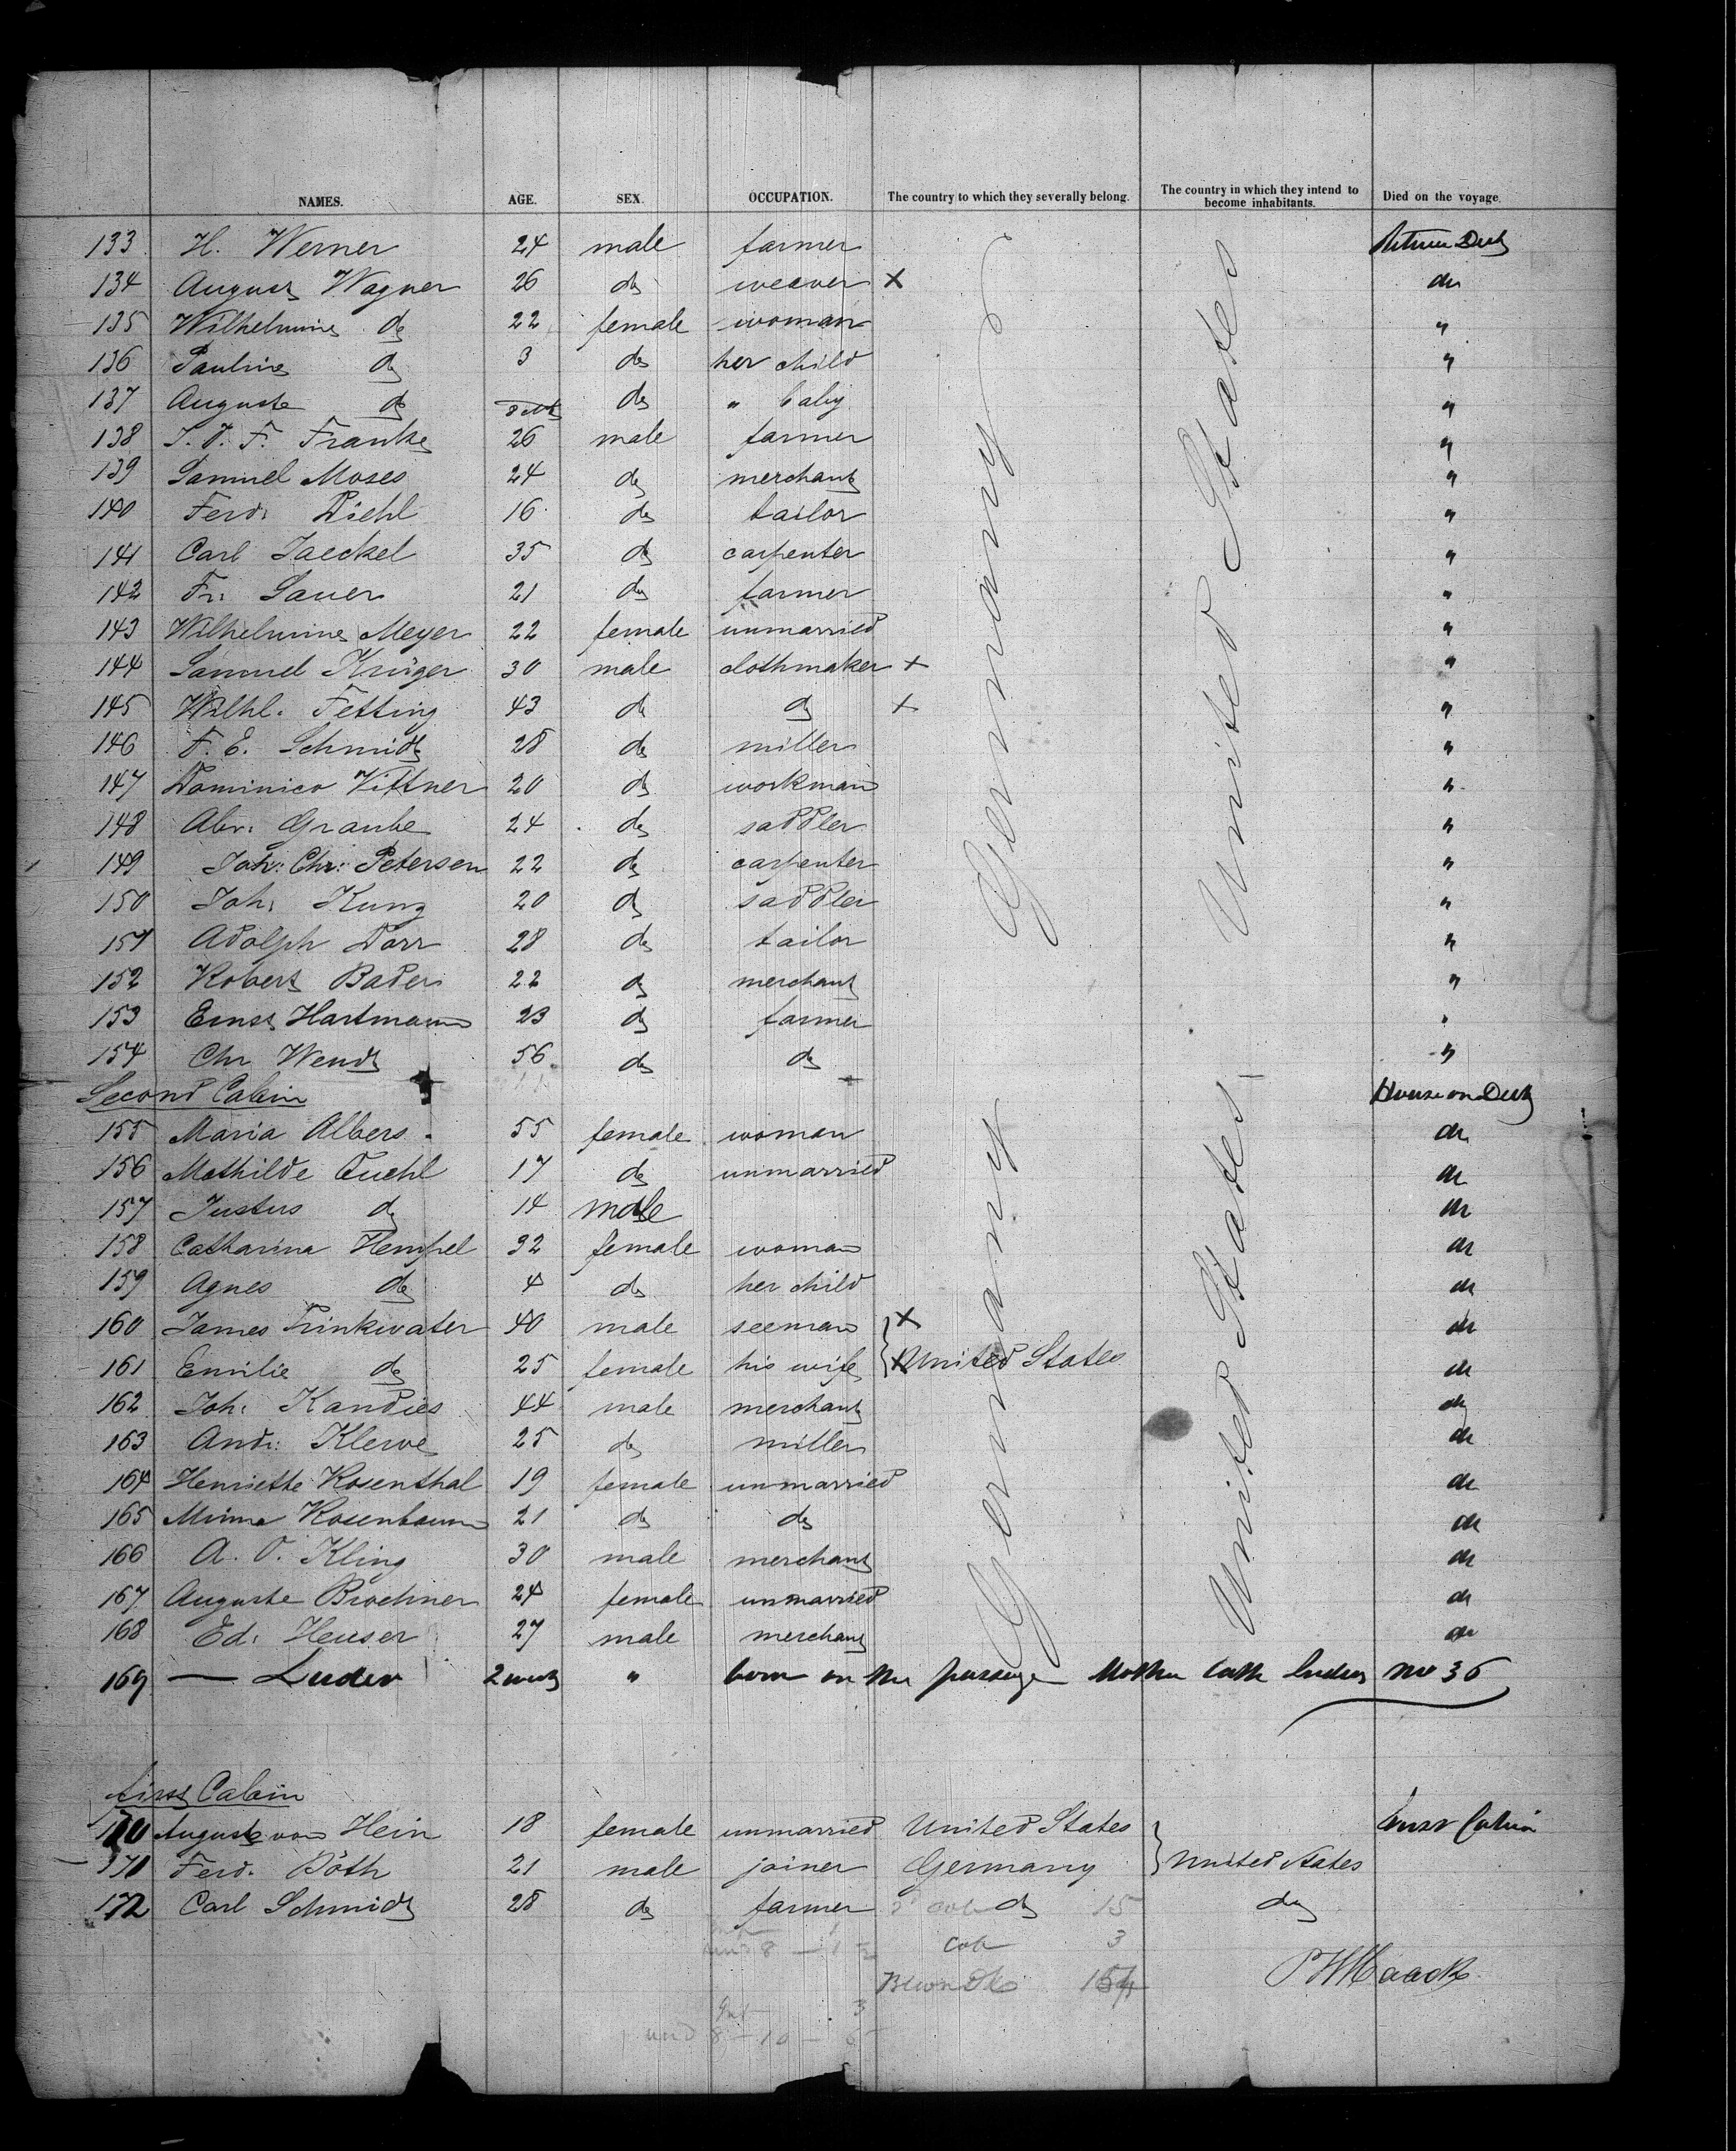 NAMES. AGE. SEX. OCCUPATION. The country to which they severally belong. The country in which they intend to become inhabitants. Died on the voyage.
133 H. Werner 24 male farmer Between Deck
134 August Wagner 26 do weaver X do
135 Wilhelmine do 22 female woman "
136 Pauline do 3 do her child "
137 Auguste do do " baby "
138 F. Franke 26 male farmer "
139 Samuel Moses 24 do merchant "
140 Ferd: Diehl 16 do tailor "
141 Carl Jaeckel 35 do carpenter "
142 Fr: Sauer 21 do farmer "
143 Wilhelmine Meyer 22 female unmarried "
144 Samuel Krüger 30 male clothmaker + "
145 Wilhl. Fetting 43 do do + "
146 F. E. Schmidt 28 do miller "
147 Dominico Vittner 20 do workman "
148 Abr: Graube 24 do saddler "
149 Joh: Chr: Petersen 22 do carpenter "
150 Joh: Kunz 20 do saddler "
151 Adolph Dorr 28 do tailor "
152 Robert Bader 22 do merchant "
153 Ernst Hartmann 23 do farmer "
154 Chr Wendt 56 do do "
Germany
United States
Second Cabin House on Deck
155 Maria Albers 55 female woman do
156 Mathilde 17 do unmarried do
157 Justus do 14 male do
158 Catharina Hempel 32 female woman do
159 Agnes do 4 do her child do
160 James Trinkwater 40 male seeman X do
161 Emilie do 25 female his wife X United States do
162 Joh: Kandies 44 male merchant do
163 Andr: Klerve 25 do miller do
164 Henriette Rosenthal 19 female unmarried do
165 Minna Rosenbaum 21 do do do
166 A. O. Kling 30 male merchant do
167 Auguste Brochner 24 female unmarried do
168 Ed: Heuser 27 male merchant do
Germany
United States
169 — Luder 2 weeks " born on the passage Mother Cath Luder no 36
first Cabin
170 Auguste von Hein 18 female unmarried United States Cabin
171 Ferd. Böth 21 male joiner Germany United States
172 Carl Schmidt 28 do farmer do 15 do
Cab 3
154